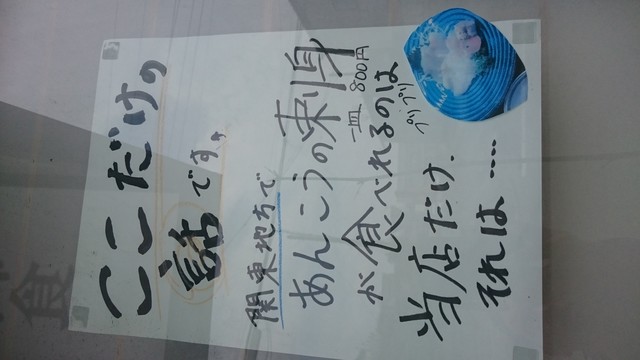 ここだけの
話です。
関東地方で
あんこうの刺身
一皿 800円
が食べれるのは
プリプリ
当店だけ.
それは....
食